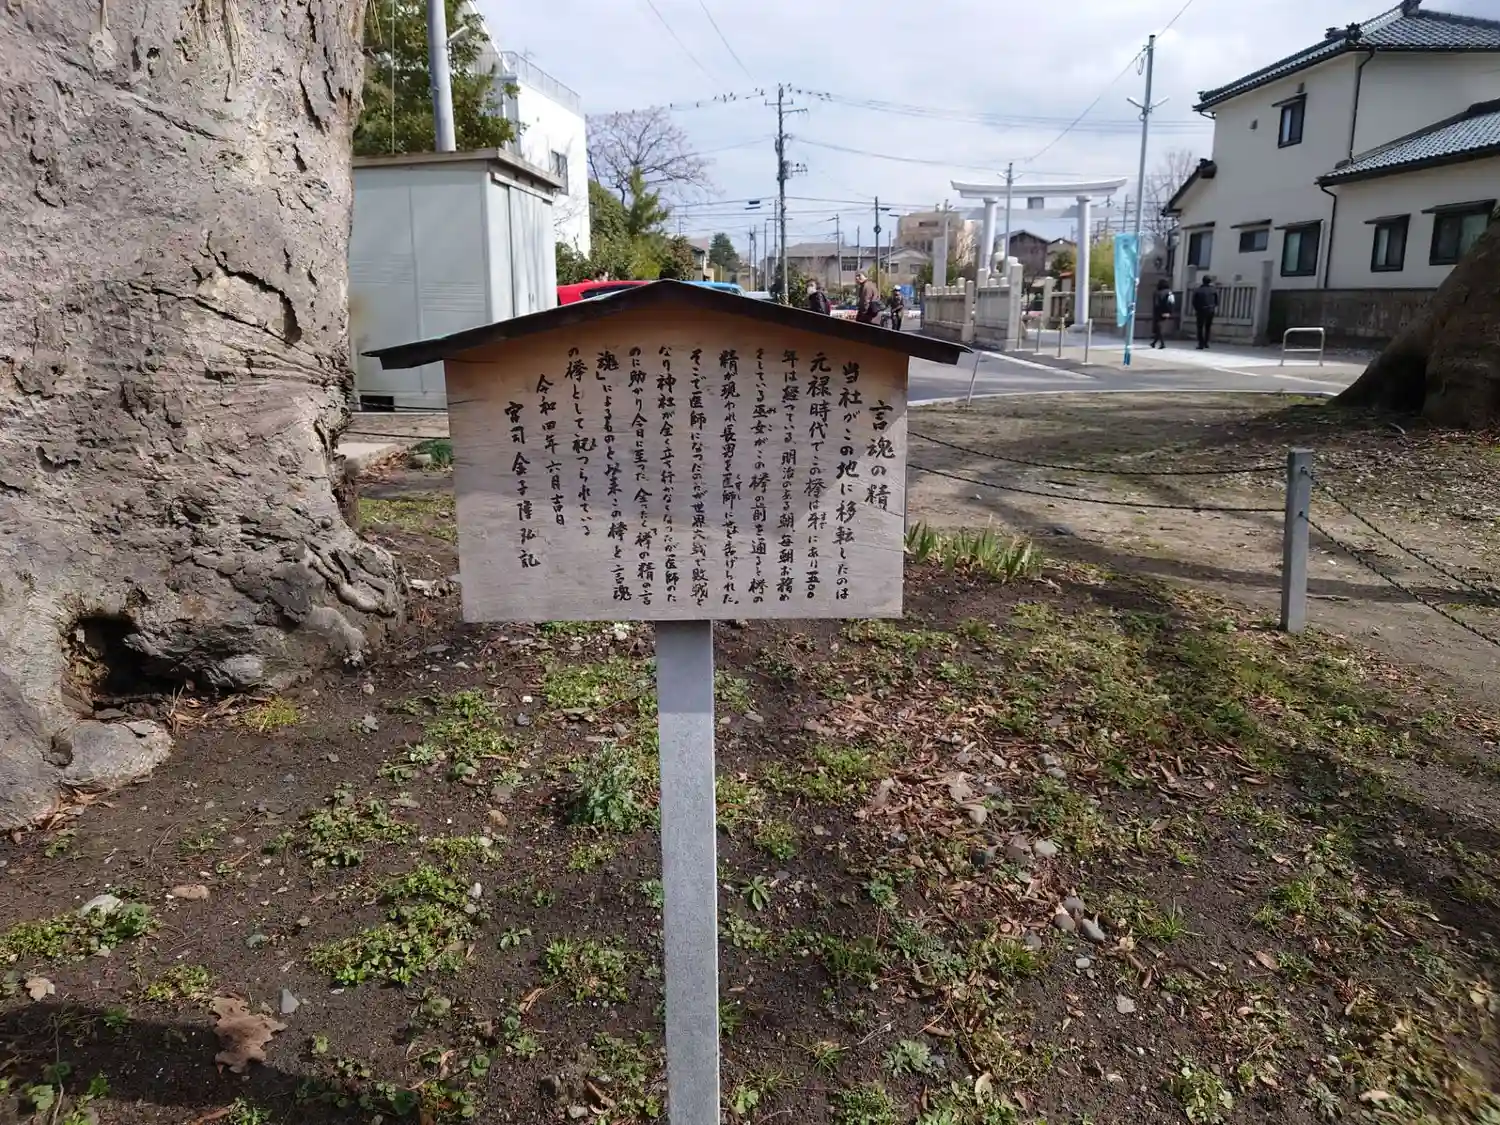 言魂の精
当社がこの地に移転したのは
元禄時代でこの欅は
すで
牙にあり五〇〇
年は経っている。明治のある朝、毎朝お務め
をしている巫女がこの欅の前を通ると欅の
みこ
精が現われ長男を医師にせよと告げられた。
くすし
そこで医師になったのだが世界大戦で敗戦と
なり神社が全く立ち行かなくなったが医師のた
めに助かり今日に至った。全ったく「欅の精の言
魂」によるものと以来、この欅と言魂
の欅として祀つられている
まつ
令和四年 六月吉日
宮司 金子隆弘記